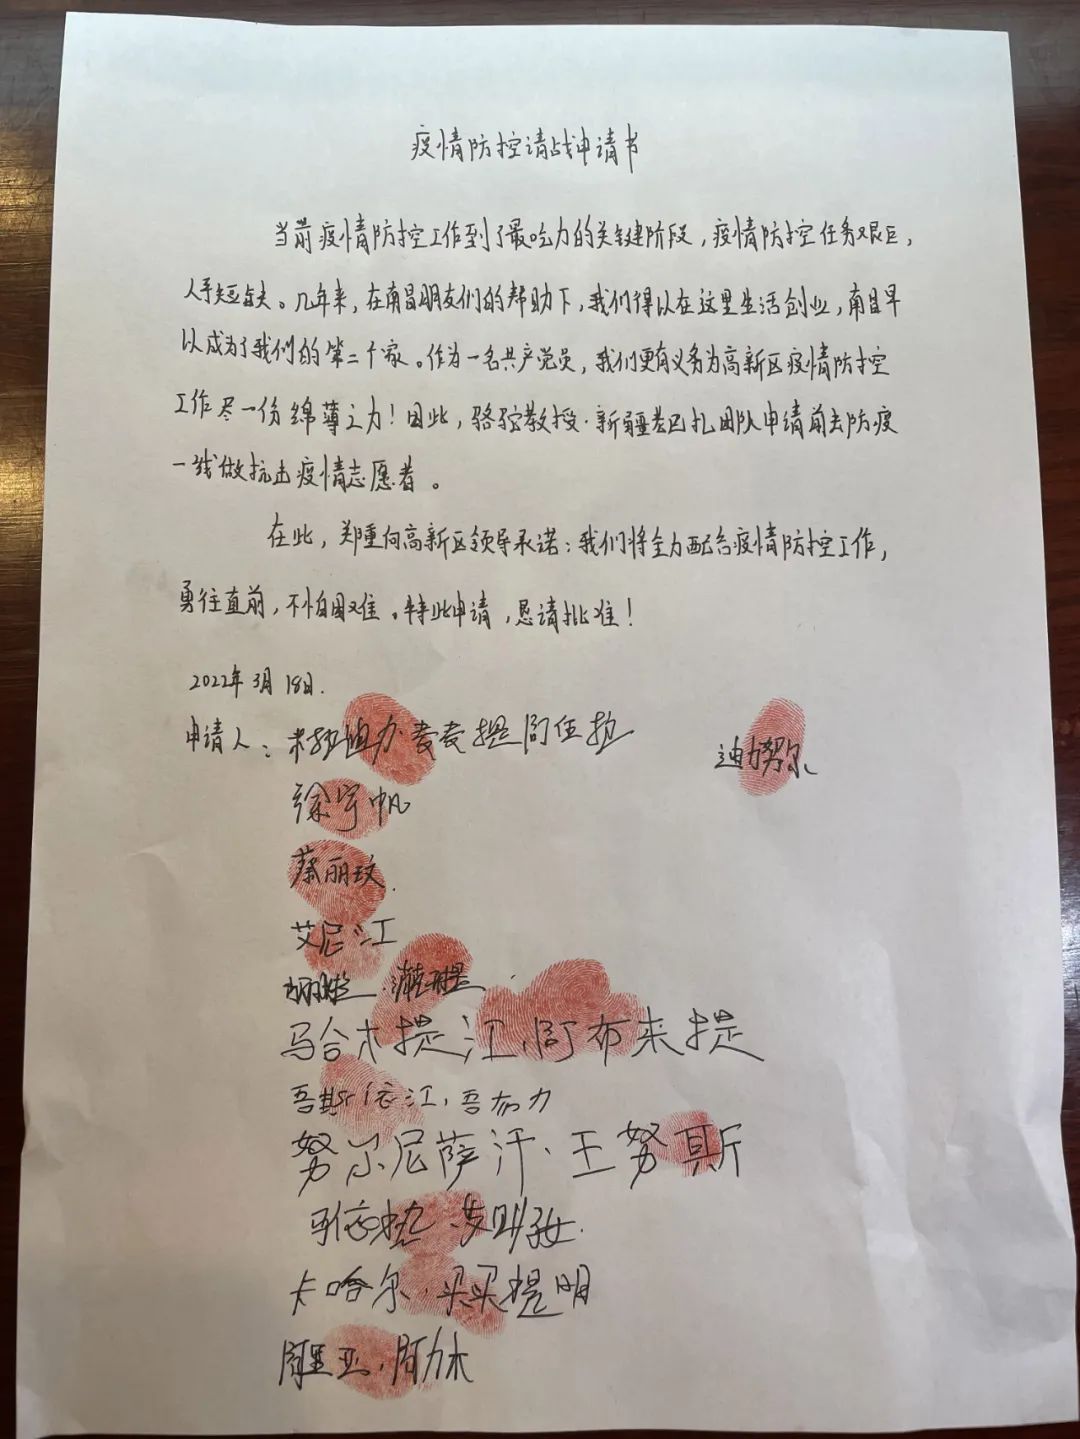 疫情防控请战申请书
当前疫情防控工作到了最吃力的关键阶段，疫情防控任务艰巨，
人手短缺。几年来，在南昌朋友们的帮助下，我们得以在这里生活创业，南昌早
以成为了我们的第二个家。作为一名共产党员，我们更有义务为高新区疫情防控
工作尽一份绵薄之力！因此，骆驼教授·新疆巷巴扎团队申请前去防疫
一线做抗击疫情志愿者。
在此，郑重向高新区领导承诺：我们将全力配合疫情防控工作，
勇往直前，不怕困难。特此申请，恳请批准！
2022年3月18日.
申请人：
迪力努尔
徐宇帆
蔡丽玟.
艾尼江
马合木提江.阿布来提
吾斯依江，吾布力
努尔尼萨汗、王努斯
卡哈尔.买买提明
阿里亚.阿力木